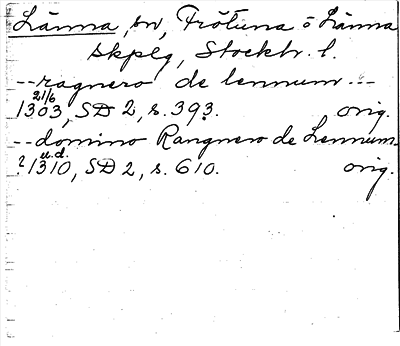 Länna, sn, Frötuna o Länna
skplg, Stockh. l.
--ragnero de lennum---
21/6
1303, SD 2, s. 393. orig.
--domino Rangnero de Lennum.
u.d.
?1310, SD 2, s. 610. orig.